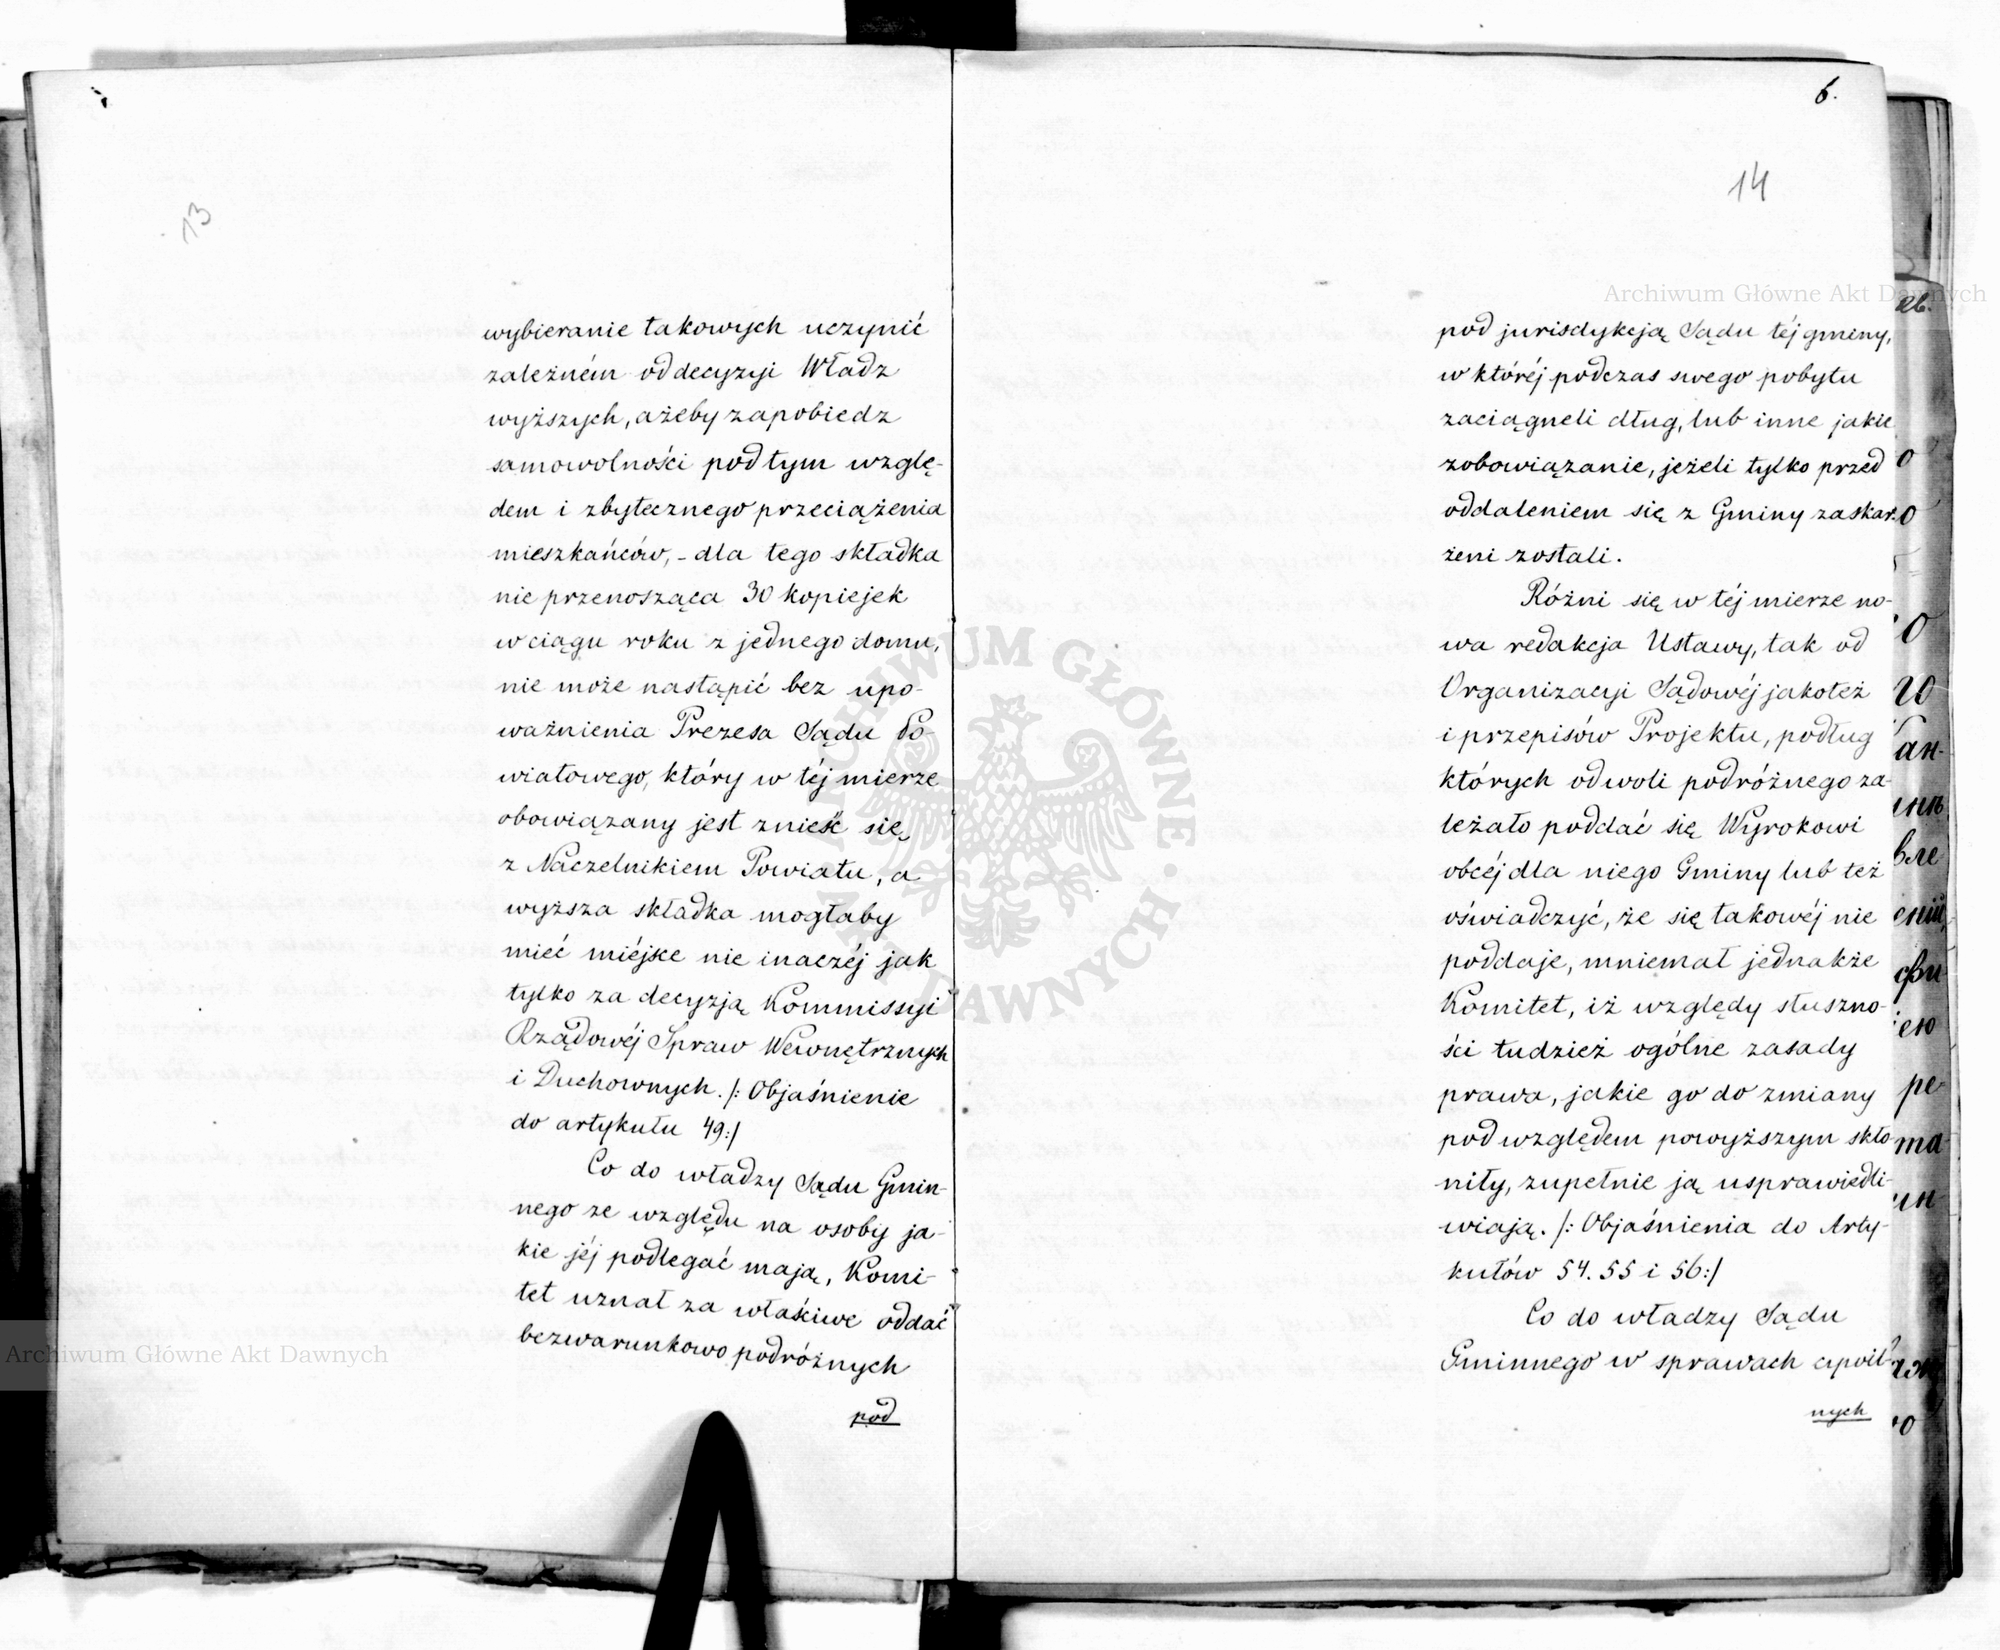 13
wybieranie takowych uczynić
zależném od decyzyi Władz
wyższych, ażeby zapobiedz
samowolności pod tym wzglę-
dem i zbytecznego przeciążenia
mieszkańców, - dla tego składka
nie przenosząca 30 kopiejek
w ciągu roku z jednego domu,
nie może nastąpić bez upo-
ważnienia Prezesa Sądu Po-
wiatowego, który w téj mierze
obowiązany jest znieść się
z Naczelnikiem Powiatu, a
wyższa składka mogłaby
mieć miéjsce nie inaczéj jak
tylko za decyzją Kommissyi
Rządowéj Spraw Wewnętrznych
i Duchownych. /: Objaśnienie
do artykułu 49:/
Co do władzy Sądu Gmin-
nego ze względu na osoby ja-
kie jéj podlegać mają, Komi-
tet uznał za właściwe oddać
bezwarunkowo podróżnych
pod
6.
14
pod jurisdykcją Sądu téj gminy,
w któréj podczas swego pobytu
zaciągneli dług, lub inne jakie
zobowiązanie, jeżeli tylko przed
oddaleniem się z Gminy zaskar-
żeni zostali.
Różni się w téj mierze no-
wa redakcja Ustawy, tak od
Organizacyi Sądowéj jakoteż
i przepisów Projektu, podług
których od woli podróżnego za-
leżało poddać się Wyrokowi
obcéj dla niego Gminy lub też
oświadczyć, że się takowéj nie
poddaje, mniemał jednakże
Komitet, iż względy słuszno-
ści tudzież ogólne zasady
prawa, jakie go do zmiany
pod względem powyższym skło-
niły, zupełnie ją usprawiedli-
wiają. /: Objaśnienia do Arty-
kułów 54. 55 i 56:/
Co do władzy Sądu
Gminnego w sprawach cywil-
nych
Archiwum Główne Akt Dawnych
Archiwum Główne Akt Dawnych
ARCHIWUM GŁÓWNE AKT DAWNYCH